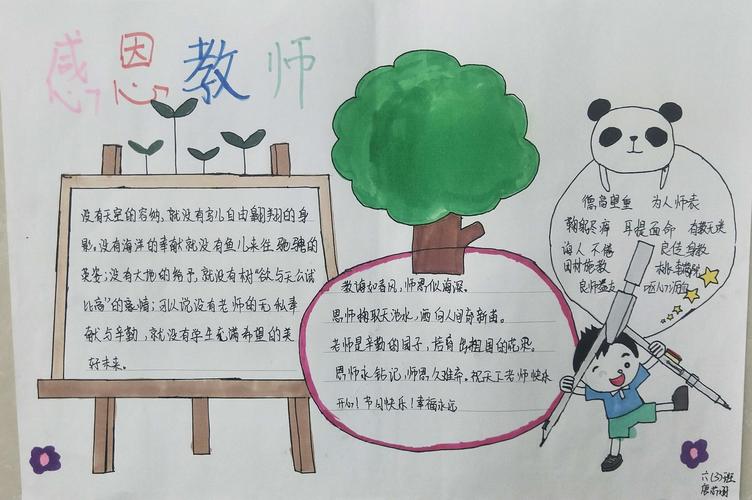 感恩教师
没有天空的容纳,就没有鸟儿自由翱翔的身
影。没有海洋的奉献就没有鱼儿来往驰骋的
英姿;没有大地的给予,就没有树“欲与天公试
比高”的豪情;可以说没有老师的无私奉
献与辛勤,就没有学生充满希望的美
好未来。
教诲如春风,师恩似海深。
恩师掬取天池水,洒向人间育新苗。
老师是辛勤的园丁,培育 祖国的花朵。
恩师永铭记,师恩久难弃。祝天下老师快乐
开心!节日快乐!幸福永远
德高望重 为人师表
鞠躬尽瘁 耳提面命 有教无类
诲人不倦 良师身教
因材施教 桃李满院
良师益友
六(3)班